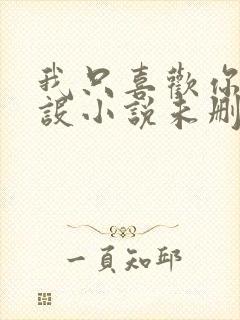 我只喜歡你
設小說未刪
一頁知邱